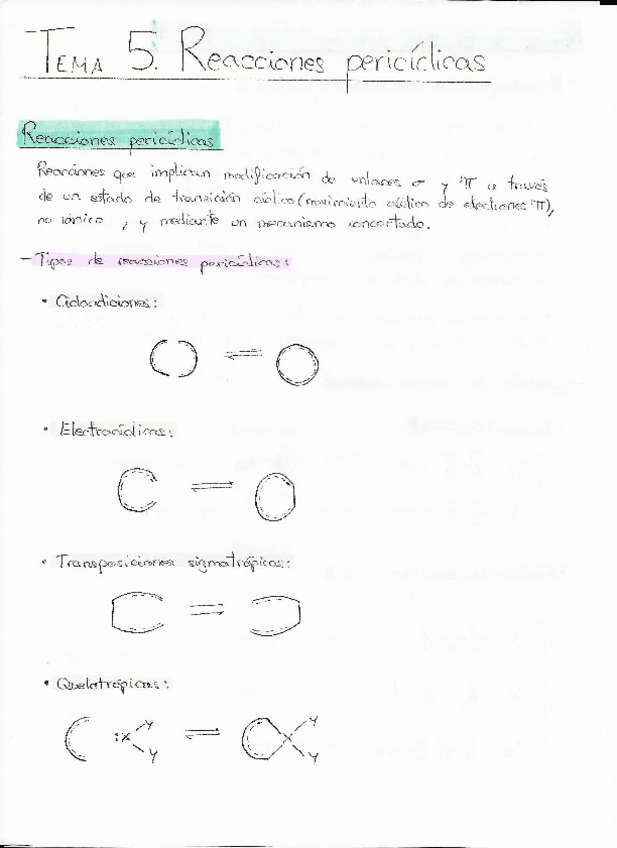 TEMA 5. Reacciones pericíclicas
Reacciones pericíclicas
Reacciones que implican modificación de enlaces σ y π a través
de un estado de transición cíclico (movimiento cíclico de electrones π),
no iónico, y mediante un mecanismo concertado.
- Tipos de reacciones pericíclicas:
• Cicloadiciones:
• Electrocíclicas:
• Transposiciones sigmatrópicas:
• Quelatrópicas:
:X Y Y Y Y